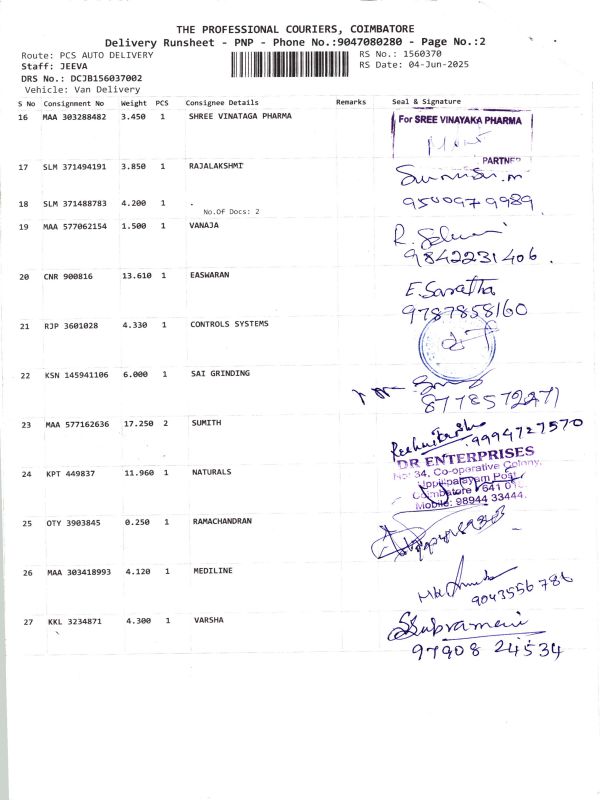 THE PROFESSIONAL COURIERS, COIMBATORE
Delivery Runsheet - PNP - Phone No.:9047080280 - Page No.:2
Route: PCS AUTO DELIVERY RS No.: 1560370
Staff: JEEVA RS Date: 04-Jun-2025
DRS No.: DCJB156037002
Vehicle: Van Delivery
S No Consignment No Weight PCS Consignee Details Remarks Seal & Signature
16 MAA 303288482 3.450 1 SHREE VINATAGA PHARMA
For SREE VINAYAKA PHARMA
PARTNER
17 SLM 371494191 3.850 1 RAJALAKSHMI
18 SLM 371488783 4.200 1 . 9500979989
No.Of Docs: 2
19 MAA 577062154 1.500 1 VANAJA R. Selvani
9842231406.
20 CNR 900816 13.610 1 EASWARAN E. Saratha
9787858160
21 RJP 3601028 4.330 1 CONTROLS SYSTEMS
22 KSN 145941106 6.000 1 SAI GRINDING
8778572271
23 MAA 577162636 17.250 2 SUMITH 9994727570
DR ENTERPRISES
No: 34, Co-operative Colony,
24 KPT 449837 11.960 1 NATURALS Uppilipalayam Post,
Coimbatore 641 015
Mobile: 98944 33444.
25 OTY 3903845 0.250 1 RAMACHANDRAN
26 MAA 303418993 4.120 1 MEDILINE
9043556786
27 KKL 3234871 4.300 1 VARSHA Subramani
97908 24534